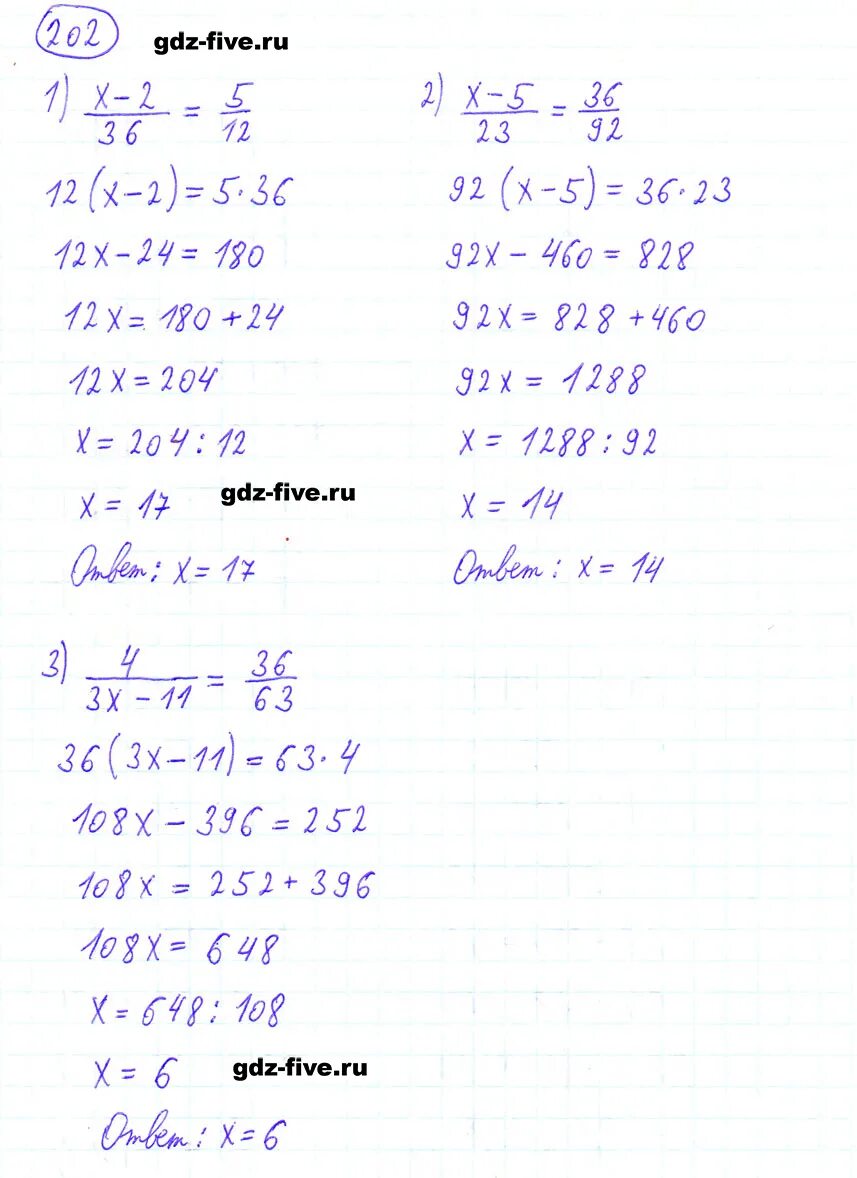 202 gdz-five.ru
1) x-2/36 = 5/12
12(x-2)=5·36
12x-24=180
12x=180+24
12x=204
x=204:12
x=17 gdz-five.ru
Ответ: x=17
2) x-5/23 = 36/92
92(x-5)=36·23
92x-460=828
92x=828+460
92x=1288
x=1288:92
x=14
Ответ: x=14
3) 4/3x-11 = 36/63
36(3x-11)=63·4
108x-396=252
108x=252+396
108x=648
x=648:108
x=6 gdz-five.ru
Ответ: x=6